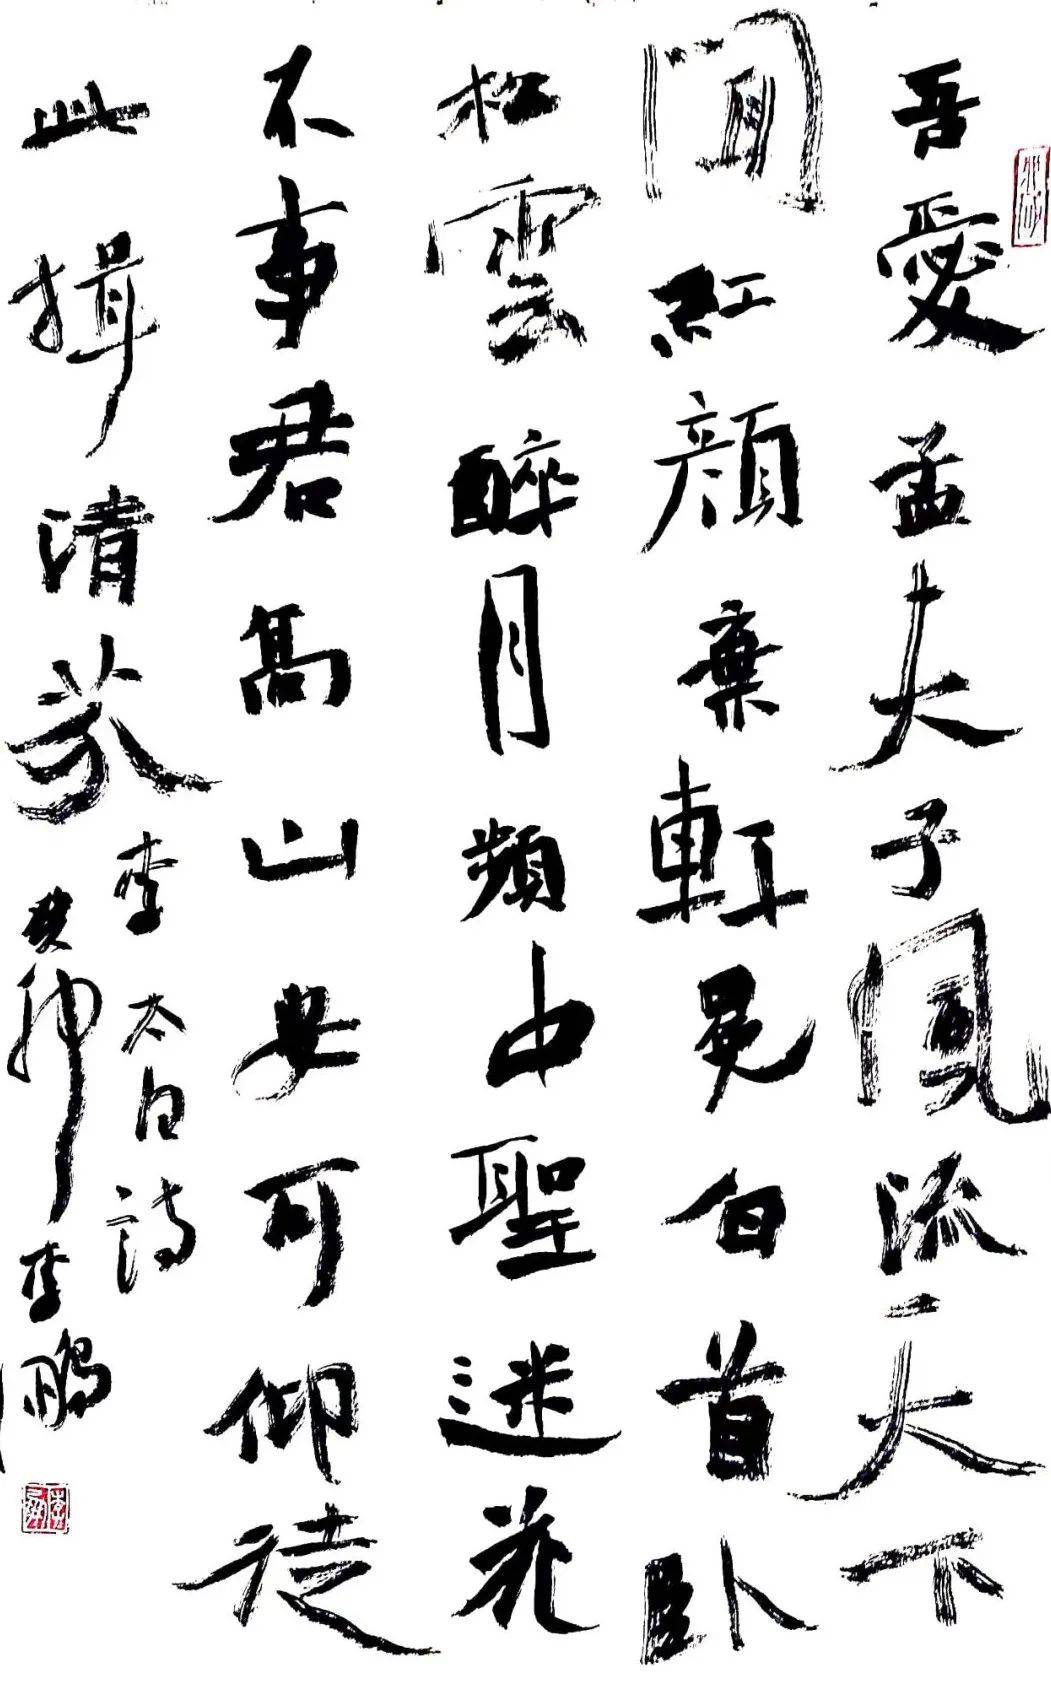 吾愛孟夫子風流天下
聞紅顔棄軒冕白首臥
松雲醉月頻中聖迷花
不事君高山安可仰徒
此揖清芬
李太白詩
癸卯李鵬